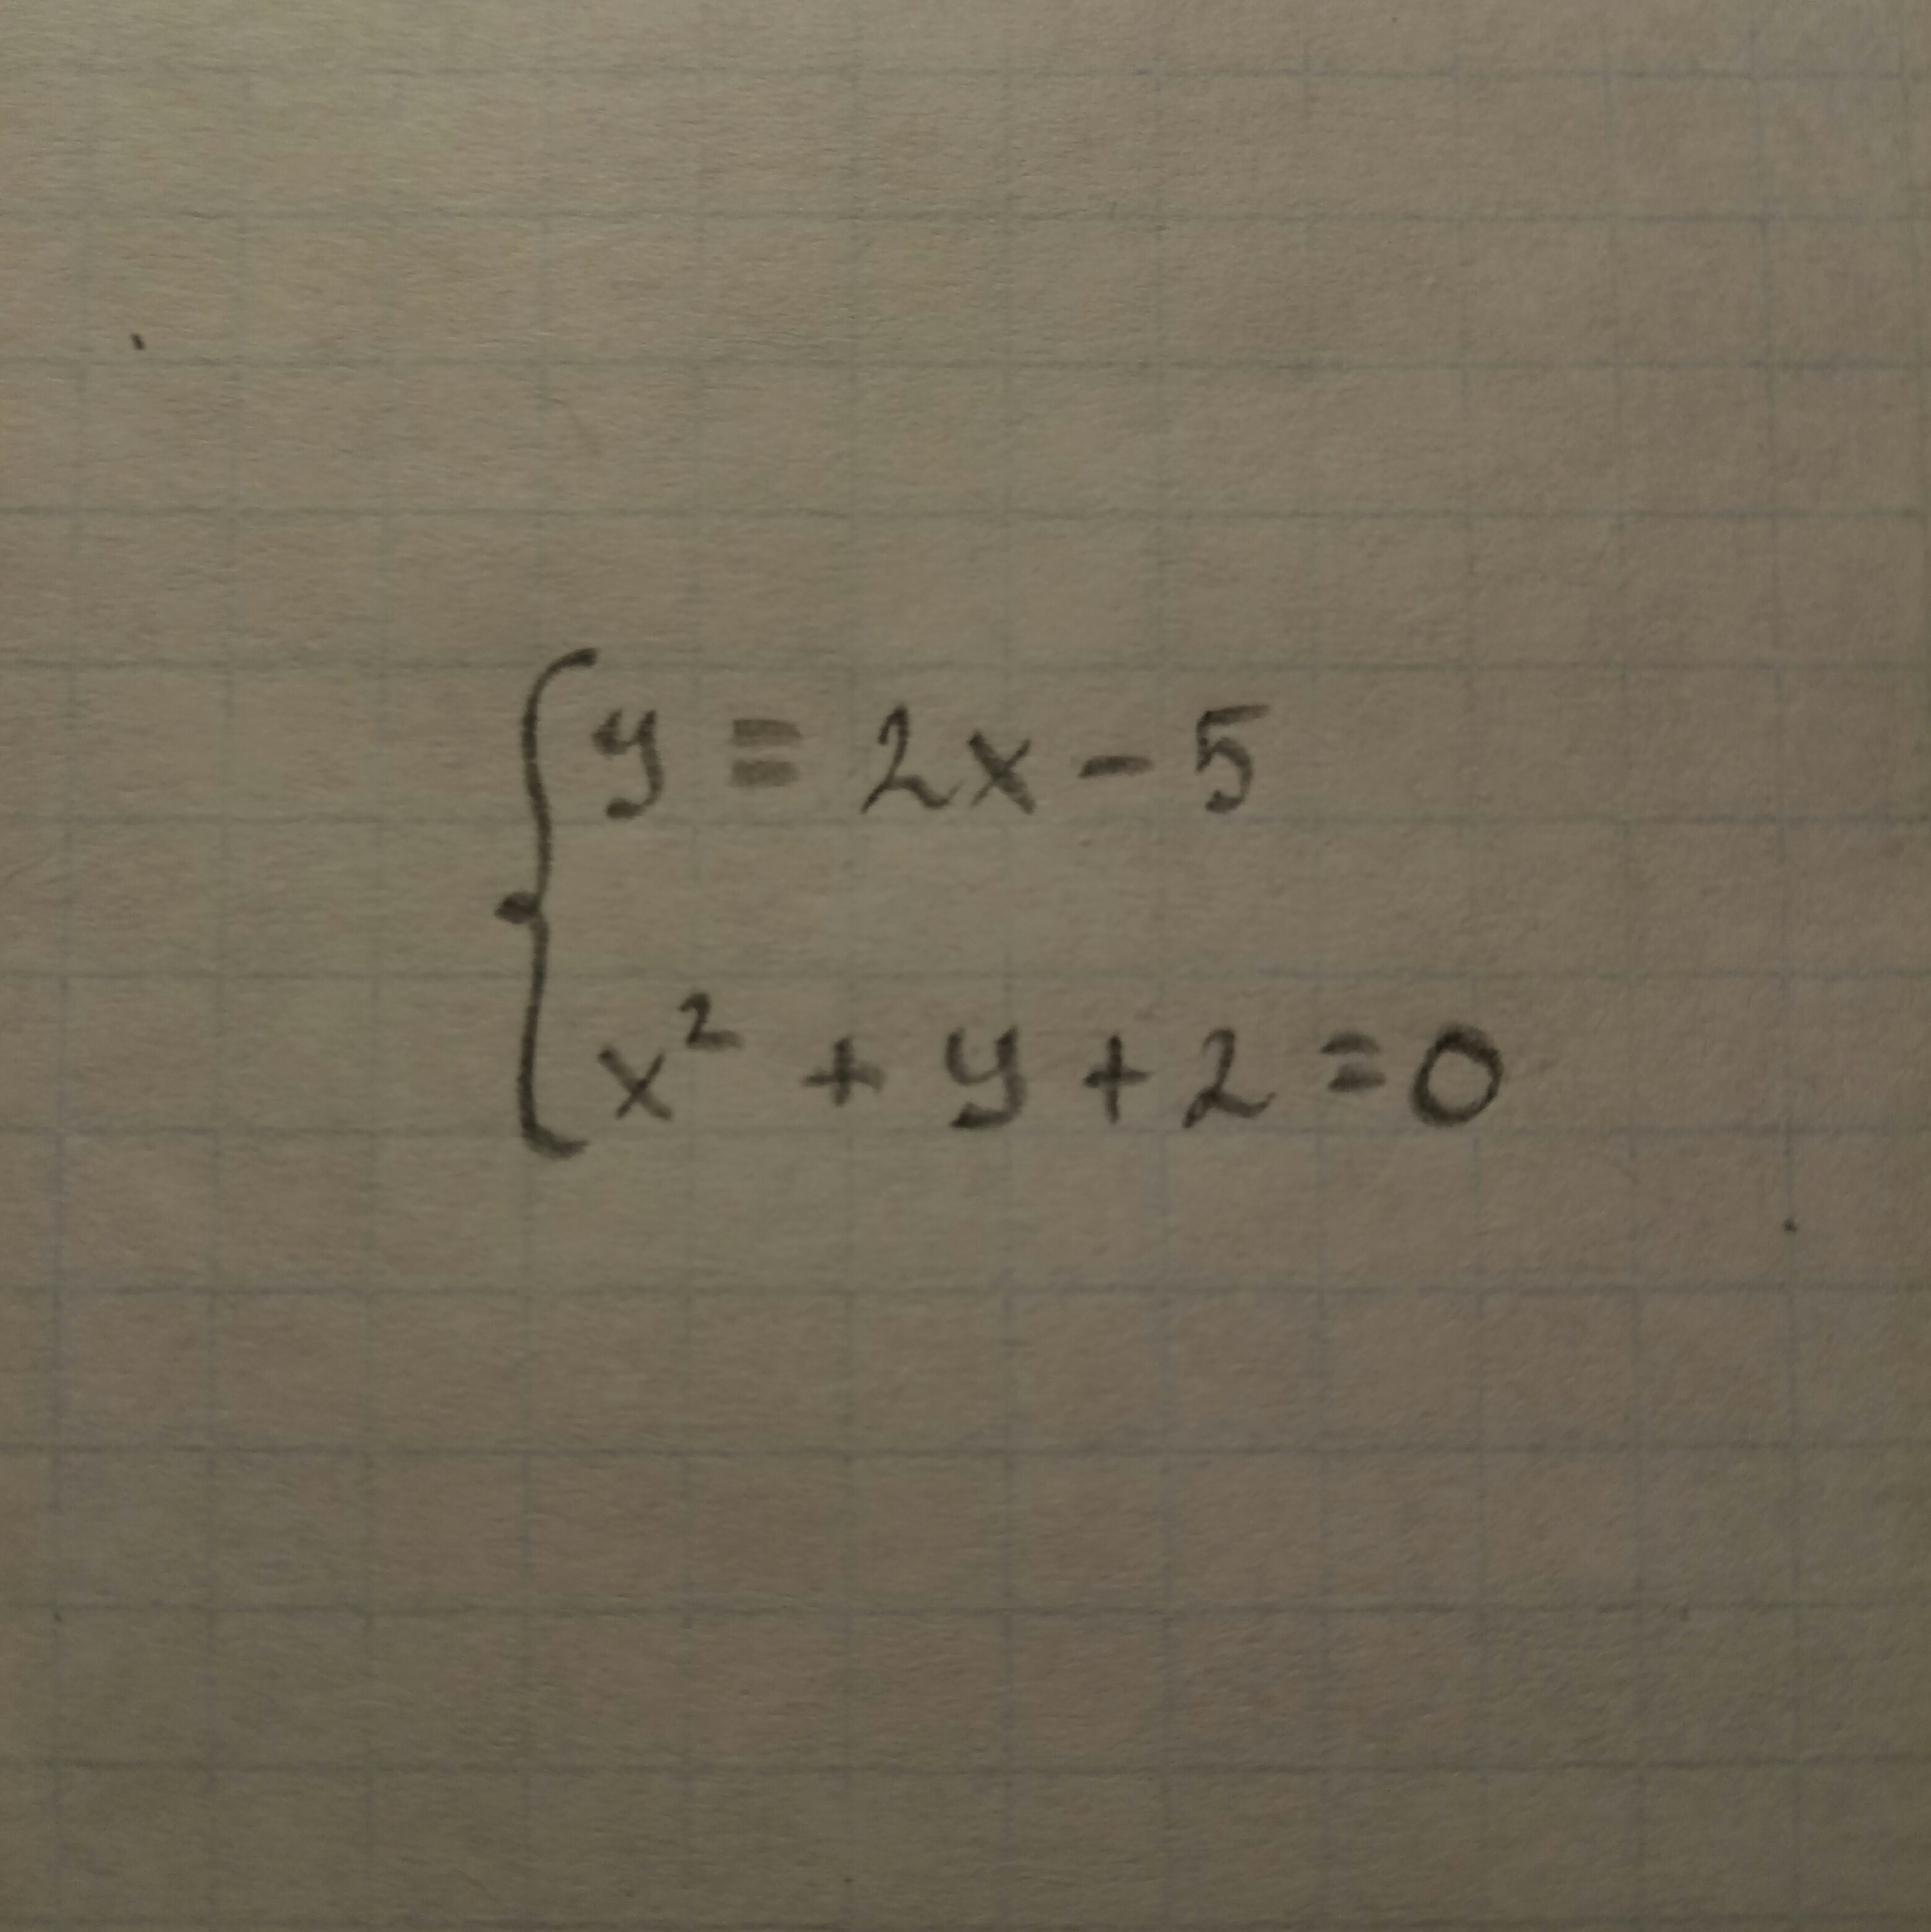 y = 2x - 5
x² + y + 2 = 0